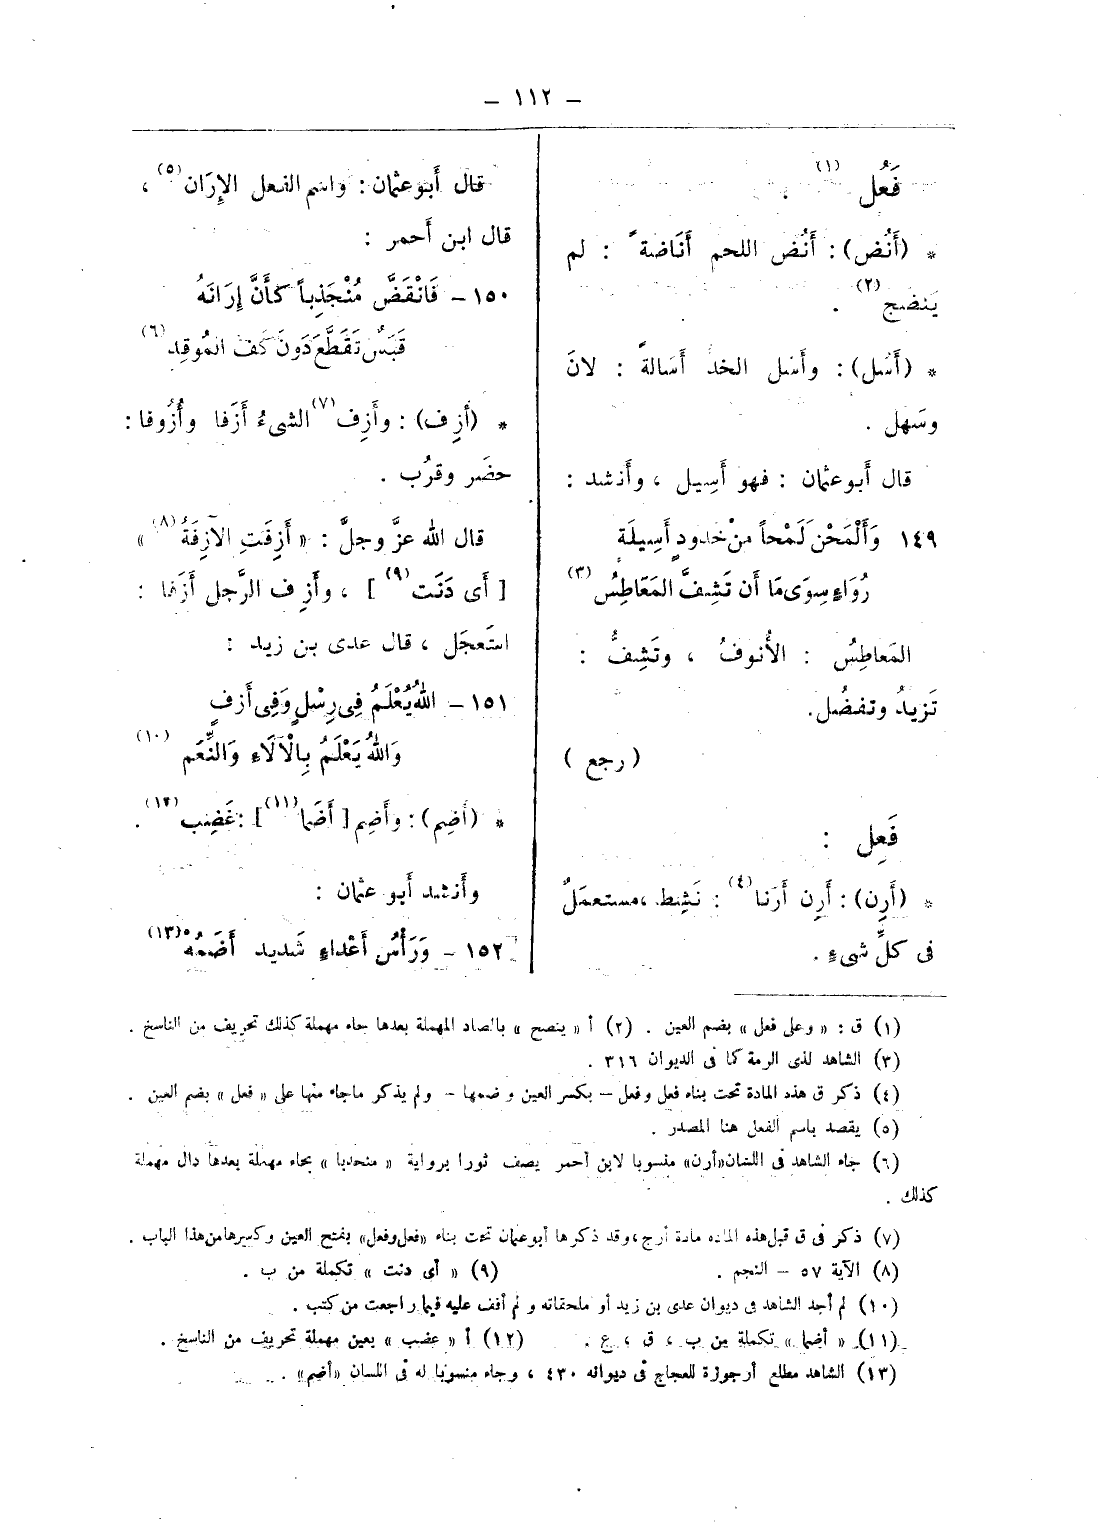 – ١١٢ –
فَعُل (١) :
* (أَنُض) : أَنُض اللحم أَنَاضةً : لم
يَنضج (٢) .
* (أَسُل) : وأَسُل الخدّ أَسَالةً : لانَ
وسَهل .
قال أَبو عثمان : فهو أَسِيل ، وأَنشد :
١٤٩ وَأَلْمَحْن لَمْحاً منْ خدودٍ أَسِيلَةٍ
رُوَاءٍ سِوَى مَا أَن تَشِفَّ المَعَاطِسُ (٣)
المَعاطِسُ : الأُنوفُ ، وتَشِفُّ :
تَزيدُ وتفضُل .
( رجع )
فَعِل :
* (أَرِن) : أَرِن أَرَنا (٤) : نَشِط ، مستعمَلٌ
فى كلِّ شىءٍ .
قال أَبو عثمان : واسم الفعل الإِرَان (٥) ،
قال ابن أَحمر :
١٥٠ – فَانْقَضَّ مُنْجَذِباً كَأَنَّ إِرَانَهُ
قَبَسٌ تَقَطَّعَ دَونَ كَفِّ المُوقِدِ (٦)
* (أَزِف) : وأَزِف (٧) الشىءُ أَزَفا وأُزُوفا :
حضَر وقرُب .
قال الله عزَّ وجلَّ : « أَزِفَتِ الآزِفَةُ (٨) »
[ أَى دَنَت (٩) ] ، وأَزِف الرَّجل أَزَفا :
استَعجَل ، قال عدى بن زيد :
١٥١ – اللهُ يُعْلَمُ فِى رِسْلٍ وَفِى أَزفٍ
وَاللهُ يَعْلَمُ بِالْآلَاءِ وَالنِّعَم (١٠)
* (أَضِم) : وأَضِم [ أَضَما (١١) ] : غَضِب (١٢) .
وأَنشد أَبو عثمان :
١٥٢ – وَرَأْسُ أَعْداءٍ شَديد أَضَمُهْ (١٣)
(١) ق : « وعلى فعل » بضم العين . (٢) أ « ينصح » بالصاد المهملة بعدها حاء مهملة كذلك تحريف من الناسخ .
(٣) الشاهد لذى الرمة كما فى الديوان ٣١٦ .
(٤) ذكر ق هذه المادة تحت بناء فعل وفعل – بكسر العين وضمها – ولم يذكر ماجاء منها على « فعل » بضم العين .
(٥) يقصد باسم الفعل هنا المصدر .
(٦) جاء الشاهد فى اللسان «أرن» منسوبا لابن أحمر يصف ثورا برواية « منحدبا » بحاء مهملة بعدها دال مهملة
كذلك .
(٧) ذكر فى ق قبل هذه المادة مادة أرج ، وقد ذكرها أبو عثمان تحت بناء «فعل وفعل» بفتح العين وكسرها من هذا الباب .
(٨) الآية ٥٧ – النجم . (٩) « أى دنت » تكملة من ب .
(١٠) لم أجد الشاهد فى ديوان عدى بن زيد أو ملحقاته و لم أقف عليه فيما راجعت من كتب .
(١١) « أضما » تكملة من ب ، ق ، ع . (١٢) أ « عضب » بعين مهملة تحريف من الناسخ .
(١٣) الشاهد مطلع أرجوزة للعجاج فى ديوانه ٤٣٠ ، وجاء منسوبا له فى اللسان «أضم» .